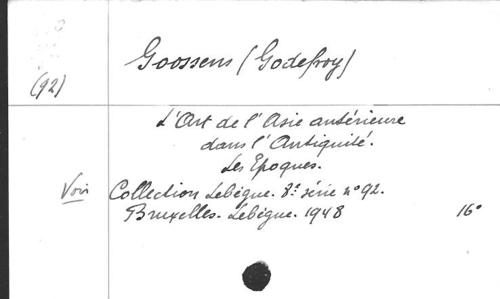 Goossens (Godefroy)
(92)
L'Art de l'Asie antérieure
dans l'Antiquité.
Les Epoques.
Voir Collection Lebègue. 8e série n° 92.
Bruxelles. Lebègue. 1948 16°